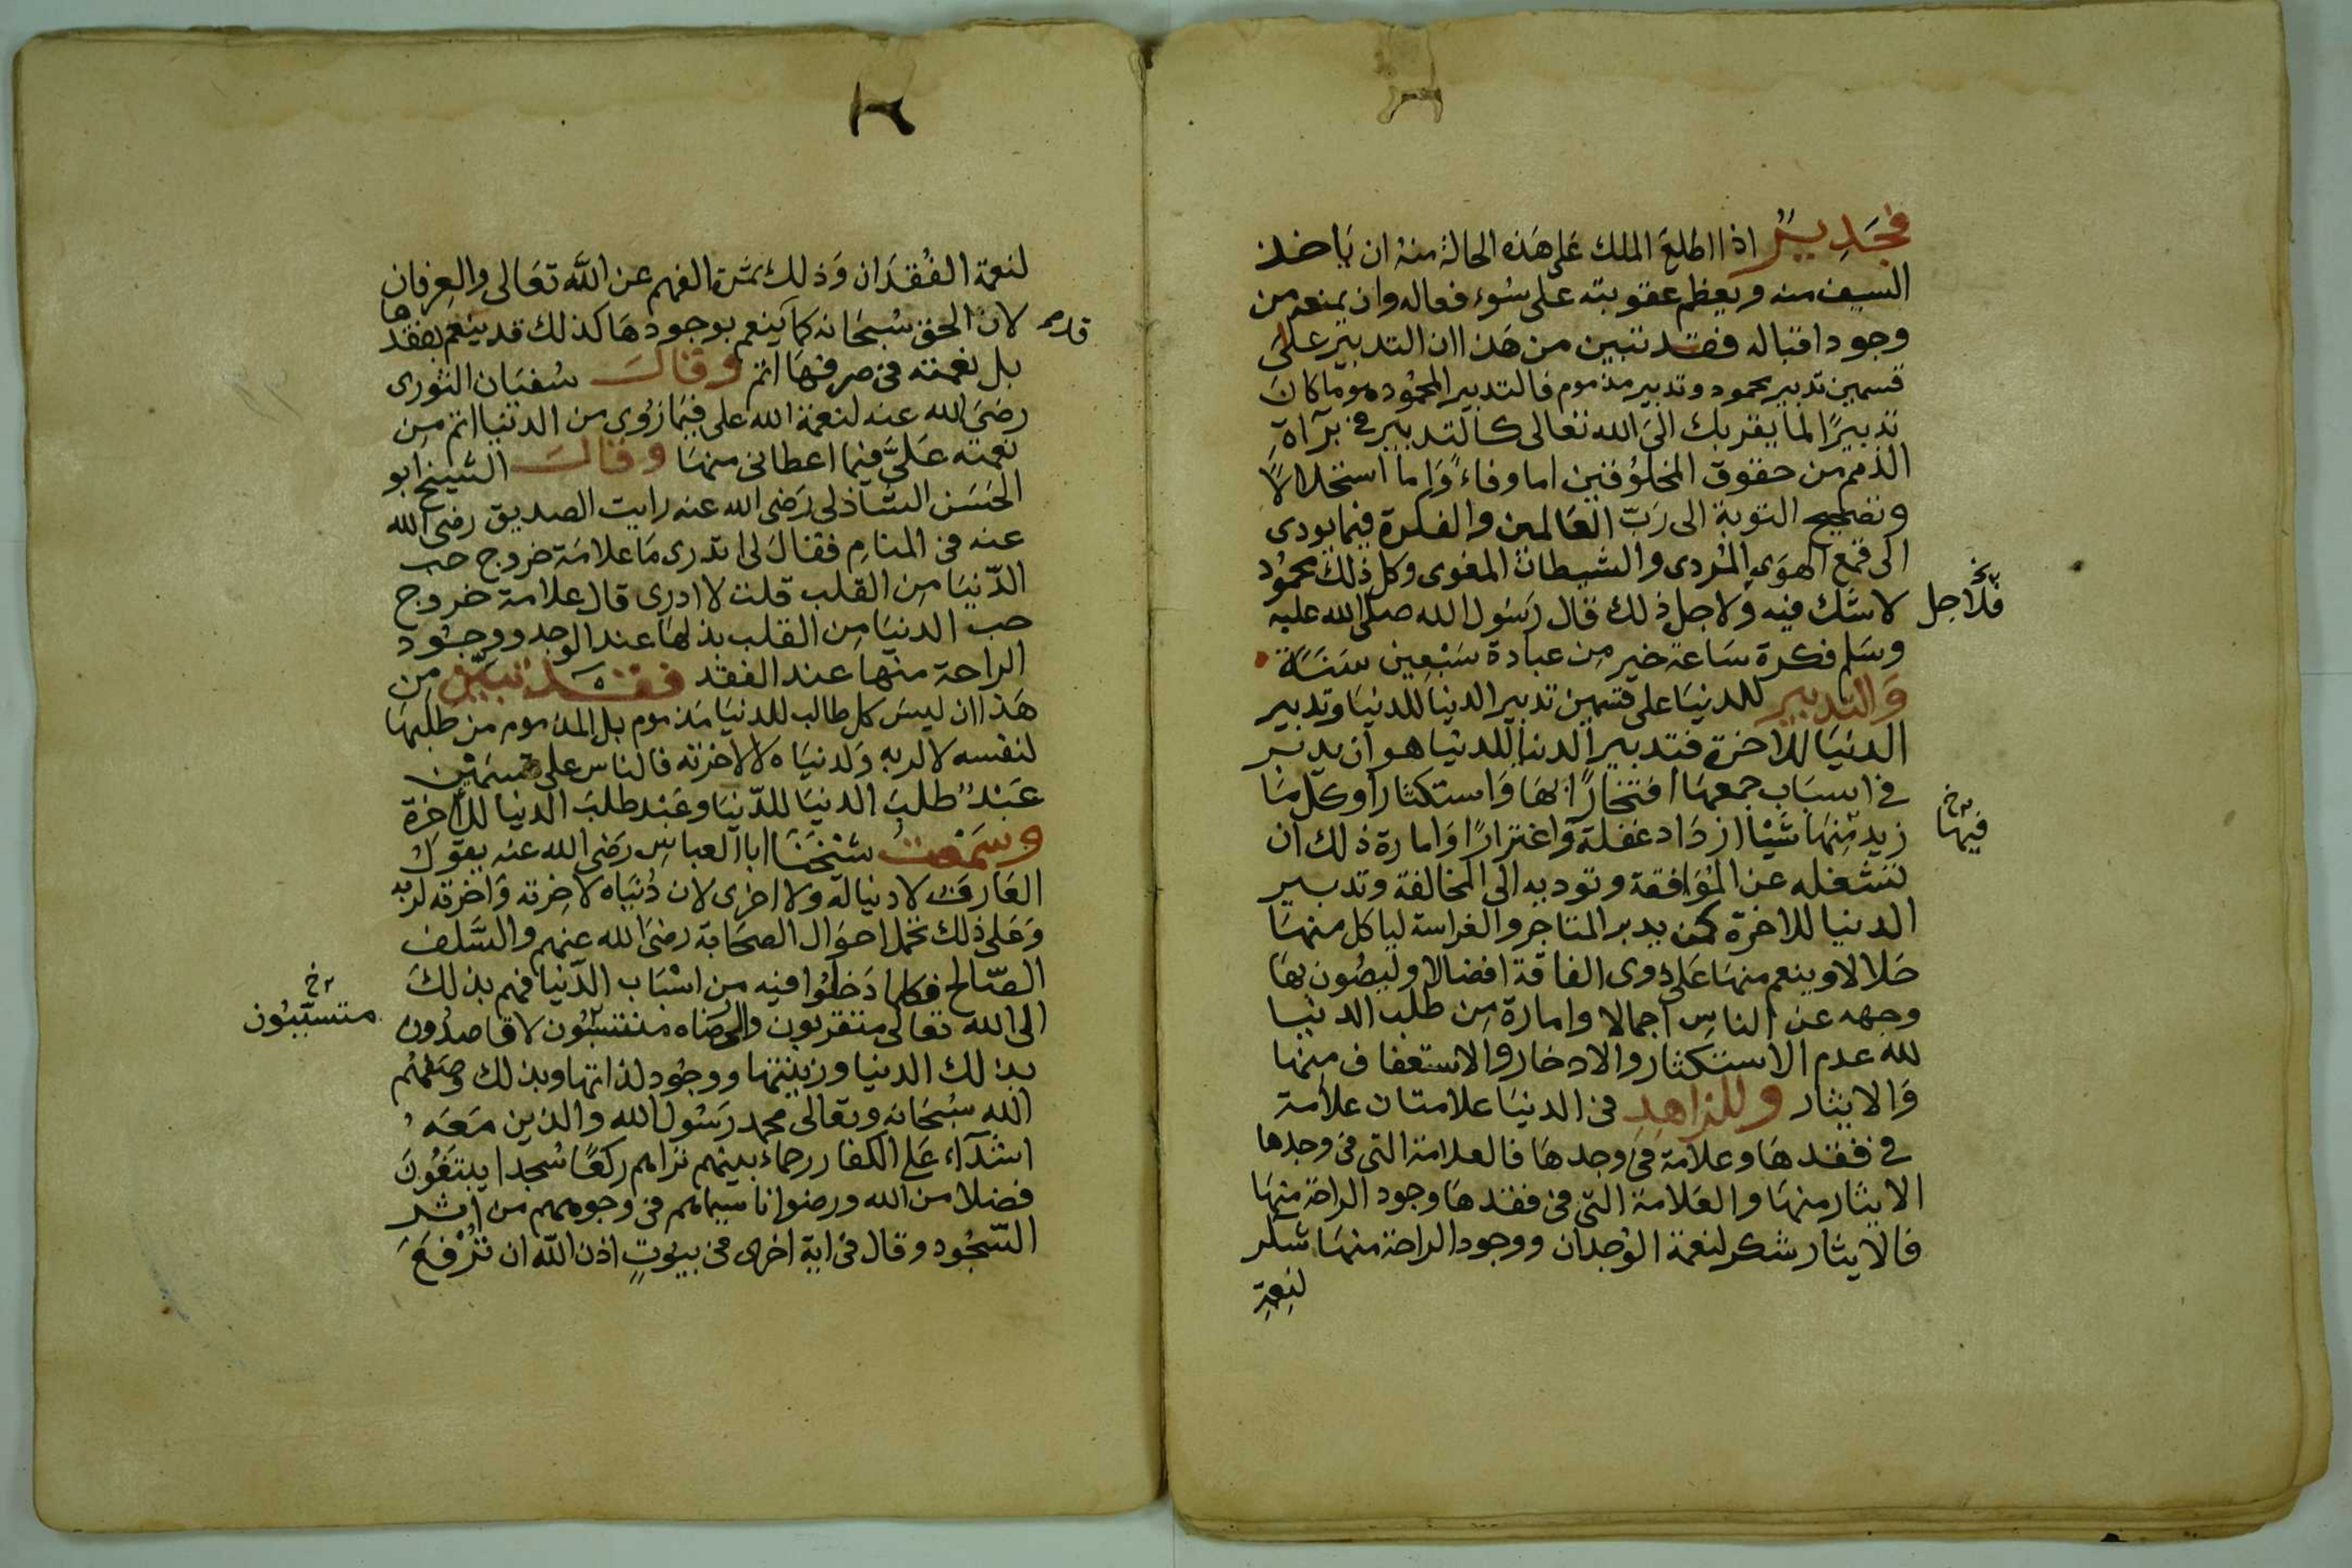 فجدير اذا اطلع الملك على هذه الحالة منه ان ياخذ
السيف منه ويعظم عقوبته على سوء فعاله وان يمنعه من
وجود اقباله فقد تبين من هذا ان التدبير على
قسمين تدبير محمود وتدبير مذموم فالتدبير المحمود هو ما كان
تدبيرًا لما يقربك الى الله تعالى كالتدبير في برآة
الذمم من حقوق المخلوقين اما وفاءً وَاما استحلالاً
وتصحيح التوبة الى رَبّ العَالمين والفكرة فيما يودى
الى قمع الهوَى المُردى والشيطان المغوى وكل ذلك محمُود
لا شك فيه ولاجل ذلك قال رَسُول الله صلى الله عليه
فلاجل
وسَلم فكرة سَاعة خير مِن عبادة سَبْعِين سَنَة
وَالتدبير للدنيَا على قسمين تدبير الدنيا للدنيَا وتدبير
الدنيَا للاخرة فتدبير الدنيا للدنيا هو ان يدبر
في اسبَاب جمعهَا افتخارًا بهَا وَاستكثارًا وكل مَا
زيد مِنهَا شَيْا ازدَاد غفلة وَاغترارًا وَامارة ذلك ان
فيهَا
تشغله عن المُوَافقة وتوديه الى المخالفة وتدبير
الدنيا للاخرة كمن يدبر المتاجر والغراسة لياكل منهَا
حَلالا وينعم منهَا عَلى ذوى الفاقة افضالا وليصُون بهَا
وجهه عن الناس اجمالا وامارة مِن طلب الدنيا
لله عدم الاستكثار والادخار والاسعاف مِنهَا
وَالايثار وللزاهد فى الدنيَا علامتان علامة
في فقدهَا وعلامة فى وجدهَا فالعلامة التى فى وجدها
الايثار منهَا والعَلامة التى فى فقدهَا وجود الراحة منهَا
فالايثار شكر لنعمة الوُجدان ووجود الراحة منهَا شكر
لنِعمة
لنعمة الفُقدَان وَذلك ثمَرة الفهم عن الله تعَالى والعِرفان
لان الحق سُبحَانه كما يَنعم بوجودهَا كذلك قد ينعم بفقدها
قد
بل نعمته فى صرفهَا اتم وقال سُفيَان الثورى
رضىَ الله عنه لنعمة الله على فيمَا زوى من الدنيا اتم مِن
نعمته عَلىَّ فيما اعطانى منهَا وقال الشيخ ابو
الحَسَن الشاذلى رَضى الله عنه رايت الصديق رضى الله
عنه فى المنام فقال لى اتدرى مَا علامَة خروج حب
الدّنيَا مِن القلب قلت لا ادرى قال علامة خروج
حب الدنيَا مِن القلب بذلهَا عند الوجد ووجُود
الراحة منها عند الفقد فقد تبيّن مِن
هَذا ان ليسَ كل طالب للدنيَا مَذموم بل المذموم من طلبهَا
لنفسه لا لربه وَلدنيَاه لا لاخرته فالناس على قسمَيْن
عَبْد طلبَ الدنيَا للدّنيَا وعَبْد طلبَ الدنيا للاخِرة
وسَمعتُ شيْخَنَا ابا العباس رَضى الله عنه يقول
العَارف لا دنيا له ولا اخرى لان دُنيَاه لاخِرته وَاخرته لربه
وَعَلى ذلك تحمل احوَال الصحَابة رضىَ الله عنهم والسَّلف
الصّالح فكلما دَخلوا فيه مِن اسْبَاب الدّنيا فهم بذلكَ
الى الله تعالى متقربون والى رضَاه منتسبُون لا قاصدُون
متسبّبُون
بذلك الدنيا وزينتها ووجُود لذاتها وبذلك وصَفهُم
الله سُبحَانه وتعالى محمد رَسُول الله والذين مَعَه
اشدآء عَلى الكفار رحماء بينهم تراهم ركعًا سُجدا يبتغُونَ
فضلا من الله ورضوانا سيماهم فى وجوههم من اثر
السّجُود وقال فى اية اخرى فى بيوتٍ اذن الله ان تُرْفعَ